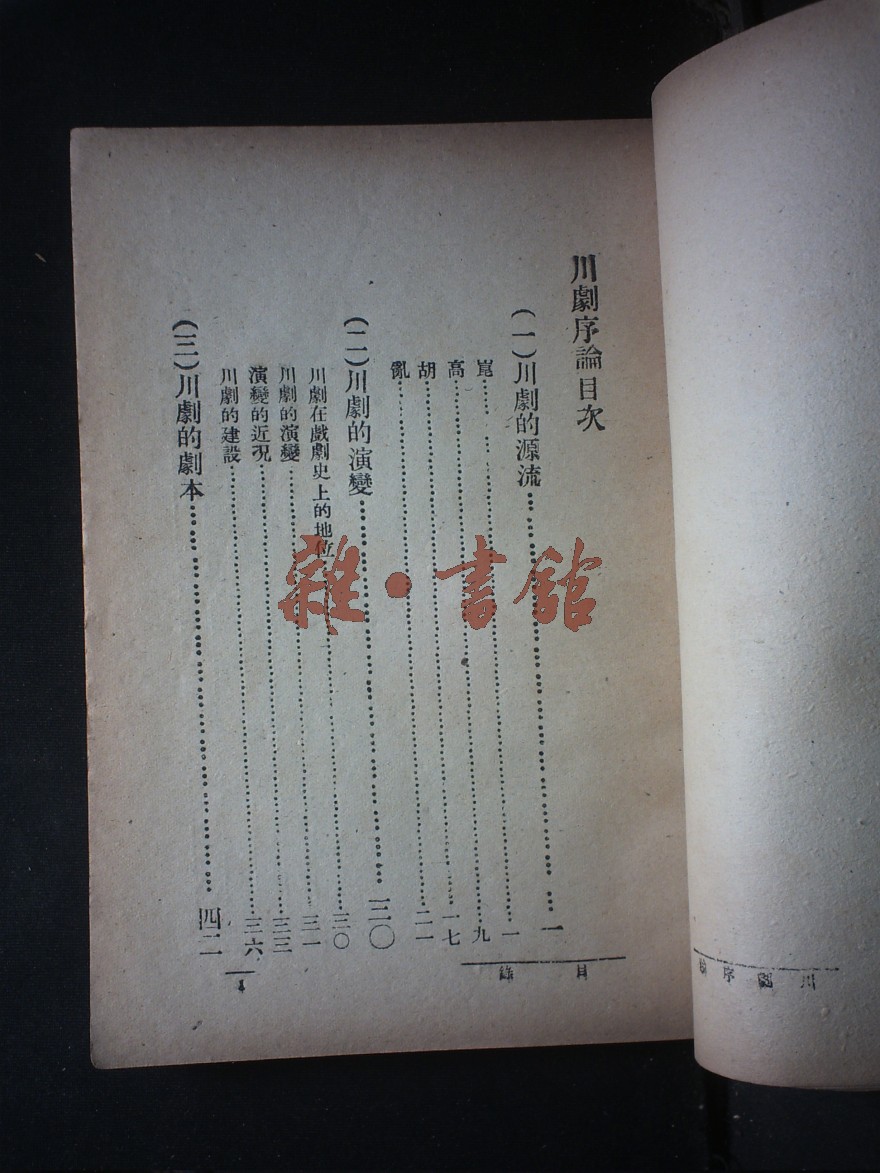 川劇序論目次
(一)川劇的源流……一
崑……一
高……九
胡……一七
亂……二一
(二)川劇的演變……三〇
川劇在戲劇史上的地位……三〇
川劇的演變……三一
演變的近況……三三
川劇的建設……三六
(三)川劇的劇本……四二
目錄
1
川劇序論
雜·書館